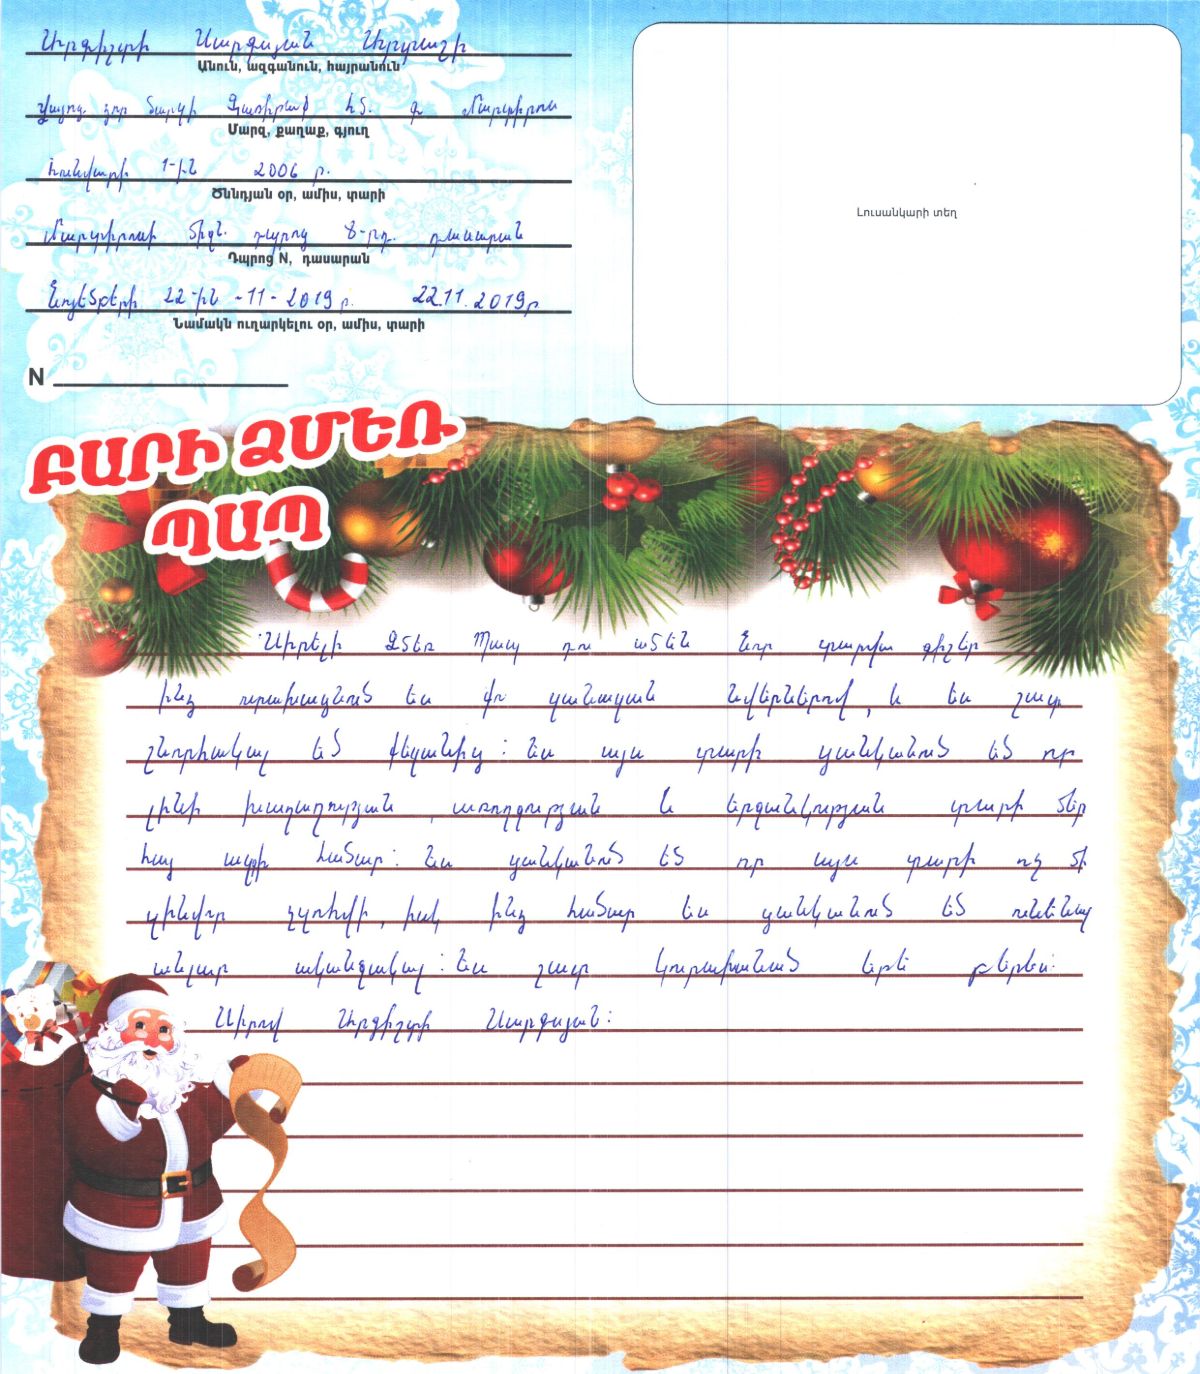 Արգիշտի Սարգսյան Արտաշի
Անուն, ազգանուն, հայրանուն
Վայոց ձոր մարզի հմ. գ Մարտիրոս
Մարզ, քաղաք, գյուղ
Հունվարի 1-ին 2006 թ.
Ծննդյան օր, ամիս, տարի
Մարտիրոսի միջն. դպրոց 8-րդ. դասարան
Դպրոց N, դասարան
Նոյեմբերի 22-ին -11-2019թ. 22.11.2019թ
Նամակն ուղարկելու օր, ամիս, տարի
N
Լուսանկարի տեղ
ԲԱՐԻ ՁՄԵՌ
ՊԱՊ
Սիրելի Ձմեռ Պապ դու ամեն նոր տարվա գիշեր
ինձ ուրախացնում ես քո զանազան նվերներով, և ես շատ
շնորհակալ եմ քեզանից: Ես այս տարի ցանկանում եմ որ
լինի խաղաղության, առողջության և երջանկության տարի մեր
հայ ազգի համար: Ես ցանկանում եմ որ այս տարի ոչ մի
զինվոր չզոհվի, իսկ ինձ համար ես ցանկանում եմ ունենալ
անլար ականջակալ: Ես շատ կուրախանամ եթե բերես:
Սիրով Արգիշտի Սարգսյան: